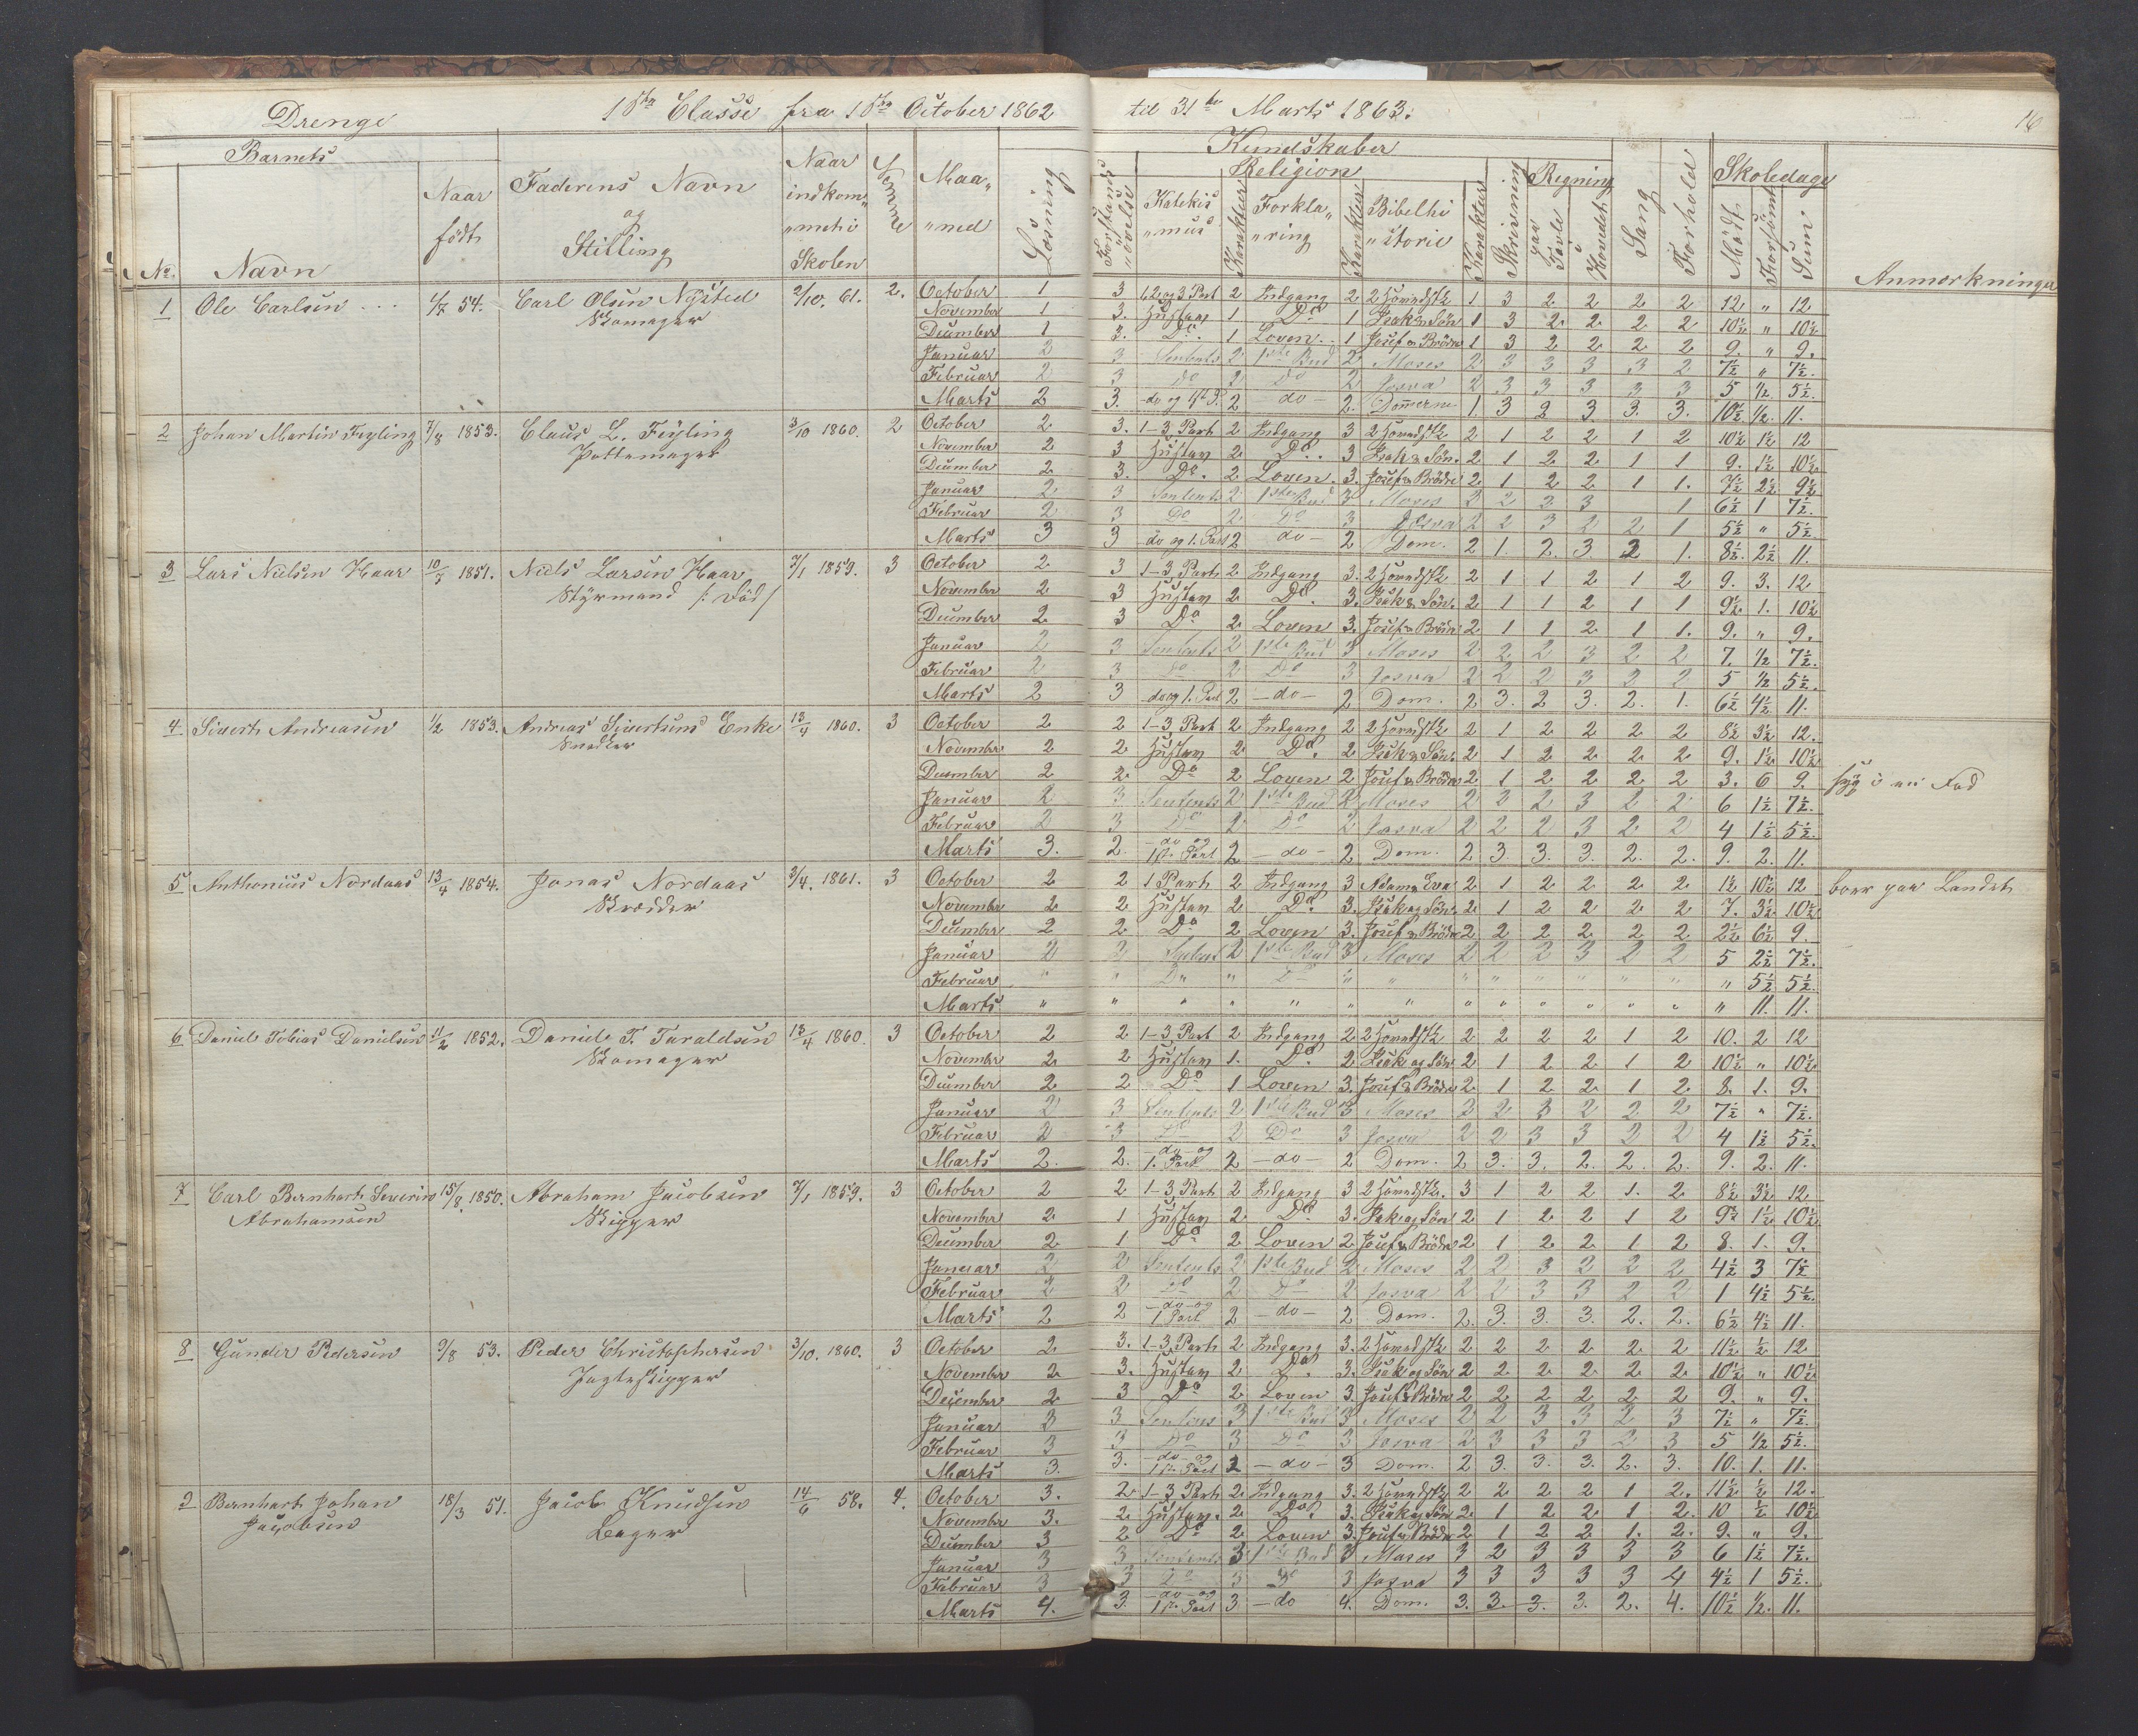 Drenge 1ste Classe fra 1ste October 1862 til 31te Marts 1863. 16
Barnets Kundskaber
Religion Regning Skoledage
No. Navn Naar født Faderens Navn og Stilling Naar indkommet i Skolen Maaned Læsning Forstandsøvelse Katekismus Karakter Forklaring Karakter Bibelhistorie Karakter Skrivning paa Tavle i Hovedet Sang Forhold Mødt Forsømt Sum Anmærkninger
1 Ole Carlsen 54. Carl Olsen Nysted 2/10. 61. 2. October 1 3 1, 2 og 3 Part 2 Indgang 2 2 Hovedstk 1 3 2 2 2 2 12 " 12
Skomager November 1 3. Husstav 1 Do 1 Isak & Søn 1 3 2 2 2 2 10½ " 10½
December 1 3. Do. 1 Loven 1 Josef & Brødre 1 3 2 2 2 2 9. " 9.
Januar 2 3 Sentents 2 1ste Bud 2 Moses 2 3 3 3 3 2 7½ " 7½.
Februar 2 3 do 2 Do 2 Josva 2 3 3 3 3 3 5 ½ 5½
Marts 2 3. 2 do 2. Domerne 1. 3 2 3. 3. 3. 10½ ½. 11.
2 Johan Martin Feyling 7/8 1853. Claus L. Feyling 3/10 1860. 2 October 2 3. 1-3 Part 2 Indgang 3 2 Hovedstk 2 1 2 2 1 2 10½ 1½ 12
Pottemager November 2 3 Husstav 2 Do. 3 Isak & Søn. 2 1 2 2 1 1 9. 1½ 10½
December 2 3. Do. 2 Loven. 3. Josef & Brødre 2 1 2 2 1 1. 7½ 2½ 9½
Januar 2 3 Sentents 2 1ste Bud 3 Moses 2 2 3 3 1 6½ 1 7½.
Februar 2 3 Do 2 Do 3 Josva 2 2 3 2 2 1 5½ " 5½
Marts 3 3 do og 1. Part 2 do 2 Dom. 2 1. 2. 3. 2 1. 8½. 2½ 11.
3 Lars Nielsen Haar 10/7 1851. Niels Larsen Haar 7/1 1859. 3 October 2 3 1-3 Part 2 Indgang 3. 2 Hovedstk 2 1 1 2 1 2 9. 3. 12
Styrmand /: död / November 2 3 Husstav 2 Do. 3. Isak & Søn. 2 1 1 2 1 1 9½. 1. 10½
December 2 3 Do 2 Loven 3. Josef & Brødre 2 1 1 2 1 1. 9. " 9.
Januar 2 3 Sentents 2 1ste Bud 3 Moses 2 2 2 3 2 2 7. ½ 7½.
Februar 2 3 Do 2 Do 3 Josva 2 2 2 3 2 2 5 ½ 5½.
Marts 2 3 do og 1. Part 2 do 2 Dom. 2 3. 2 3. 2. 1. 6½ 4½ 11.
4 Sivert Andreasen ½ 1853. Andreas Sivertsens Enke 13/4 1860. 3 October 2 2 1-3 Part 2 Indgang 2 2 Hovedstk 2 1 2 2 2 2 8½ 3½ 12.
Snedker November 2 2 Husstav 2 Do. 2 Isak & Søn. 2 1 2 2 2 2 9. 1½ 10½
December 2 2 Do 2 Loven 2 Josef & Brødre 2 1 2 2 2 2 3. 6 9. syg i en Fod
Januar 2 3 Sentents 2 1ste Bud 2 Moses 2 2 2 3 2 2 6 1½ 7½.
Februar 2 3 Do 2 Do 2 Josva 2 2 2 3 2 2 4 1½ 5½.
Marts 3. 2. do og 1ste Part 2 do 2 Dom. 2 3. 3. 3. 2. 2. 9. 2. 11.
5 Anthonius Nordaas 13/4 1854. Jonas Nordaas 3/4. 1861. 3 October 2 2 1 Part 2 Indgang 3 Adam & Eva 2 1 2 2 2 2 1½ 10½ 12 boer paa Landet
Skrædder November 2 2 Husstav 2 Do. 3. Isak og Søn. 2 1 2 2 2 2 7. 3½ 10½
December 2 2 Do 2 Loven 3. Josef & Brødre 2 2 2 2 2 2 2½ 6½ 9.
Januar 2 2 Sentents 2 1ste Bud 3 Moses 2 2 2 3 2 2 5 2½ 7½.
Februar " D " " " " " " " " " " 5½ 5½.
Marts " " " " " " " " " " " " " " 11. 11.
6 Daniel Tobias Danielsen 11/2 1852. Daniel T. Taraldsen 13/4 1860. 3 October 2 2 1-3 Part 2 Indgang 2 2 Hovedstk 2 2 2 2 1 2 10. 2 12
Skomager November 2 2 Husstav 1. Do. 2 Isak og Søn 2 1 2 2 1 2 10½ " 10½
December 2 2 Do 1 Loven 3. Josef & Brødre 2 1 2 2 1 2 8. 1. 9.
Januar 2 3 Sentents 2 1ste Bud 3 Moses 2 2 3 2 2 2 7½ " 7½.
Februar 2 3 Do 2 Do 3 Josva 2 2 3 3 2 2 4 1½ 5½.
Marts 2. 2. do og 1. Part 2 do 2 Dom. 2 3. 3. 2. 2. 2. 9. 2. 11.
7 Carl Bernhart Severin 15/8. 1850. Abraham Jacobsen 7/1 1859. 3 October 2 2 1-3 Part 2 Indgang 3 2 Hovedstk. 3 1 2 2 1. 2 8½ 3½ 12
Abrahamsen Skipper November 2 1 Husstav 2 Do. 3. Isak og Søn 2 1 2 2 1 2 9½ 1½ 10½
December 2 1 Do 2 Loven 2 Josef & Brødre 2 1 2 2 1 2 8. 1. 9.
Januar 2 2 Sentents 2 1ste Bud 2 Moses 2 2 3 2 2 2 4½ 3 7½
Februar 2 2 Do 2 Do 2 Josva 2 2 3 3 2 2 1 4½ 5½.
Marts 2 2 do og 1 Part 2 do 2 Dom. 2. 3. 3. 3. 2. 2. 6½ 4½ 11.
8 Gunder Pedersen 9/8 53. Peder Christophersen 3/10. 1860. 3 October 2 3. 1-3 Part 2 Indgang 3. 2 Hovedstk 2 2 2 2 2 2 11½ ½ 12
Jagteskipper November 2 3. Husstav 2 Do. 3. Isak og Søn 2 2 2 2 2 2 10½ " 10½
December 2 3 Do 2 Loven 3. Josef & Brødre 2 2 2 2 2 2 9. " 9.
Januar 3 3 Sentents 3 1ste Bud 3 Moses 2 2 3 3 2 3 7½ " 7½.
Februar 3 3 Do 3 Do 3 Josva 2 3 3 3 2 3 5 ½ 5½.
Marts 3. 3. do og 1ste Part 2 do 3 Dom. 2 3. 3. 3. 2. 3. 10. 1. 11.
9 Bernhart Johan 18/3 51. Jacob Knudsen 14/6 58. 4. October 3. 2 1-3 Part 2 Indgang 3. 2 Hovedstk 2 2 2 2 1 2. 11½ ½ 12.
Jacobsen Bager November 3. 2 Husstav. 2 Do. 3. Isak & Søn 2. 1 2 2 1 2. 10 ½ 10½
December 3 2 Do 2 Loven 3. Josef & Brødre 2 1 2 2 1. 2. 9. " 9.
Januar 3 3 Sentents 3 1ste Bud 3 Moses 3 2 3 3 3 3 6 1½ 7½.
Februar 3 3 Do 3 Do 3 Josva 3 3 3 3 3 4 4½ 1 5½.
Marts 4. 3. do og 1ste Part 3 do 4. Dom. 3. 3. 3. 3. 2. 4. 10½ ½. 11.